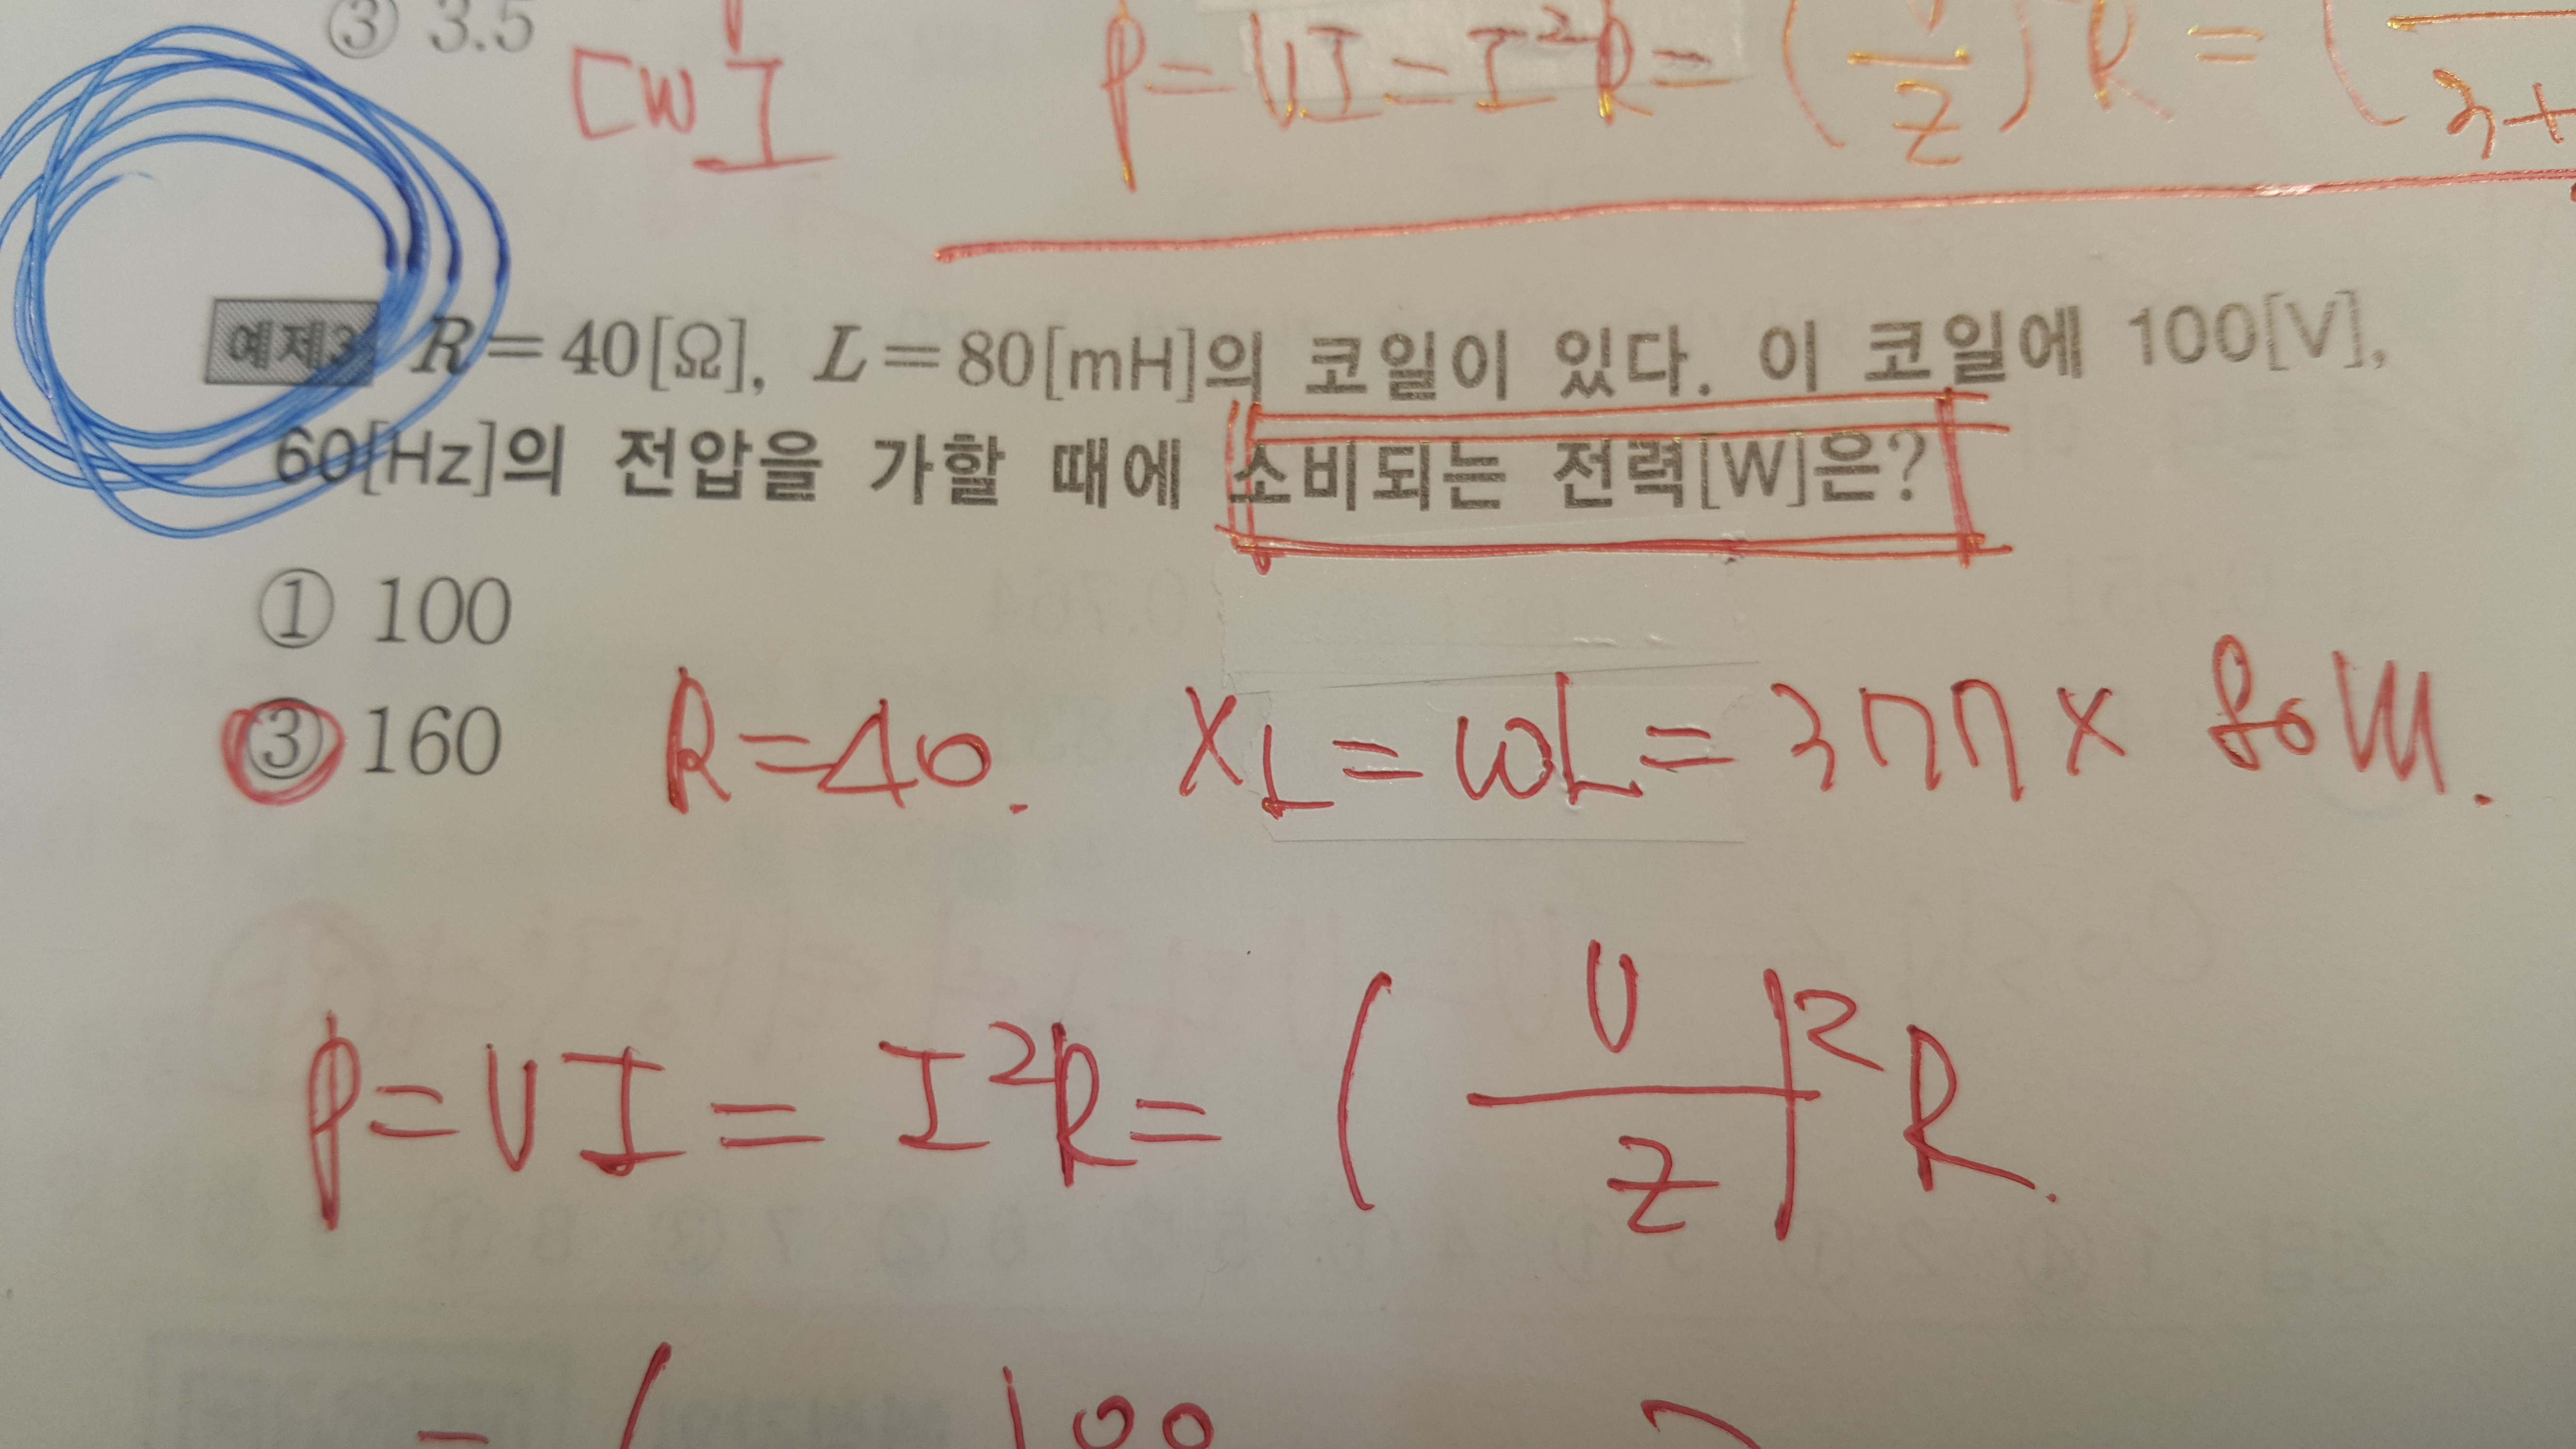 ③ 3.5
[W]
P=VI=I²R=(V/Z)²R=(
예제3 R=40[Ω], L=80[mH]의 코일이 있다. 이 코일에 100[V],
60[Hz]의 전압을 가할 때에 소비되는 전력[W]은?
① 100
③ 160
R=40. X_L=ωL=377× 80m.
P=VI=I²R=(V/Z)²R.
=( 100